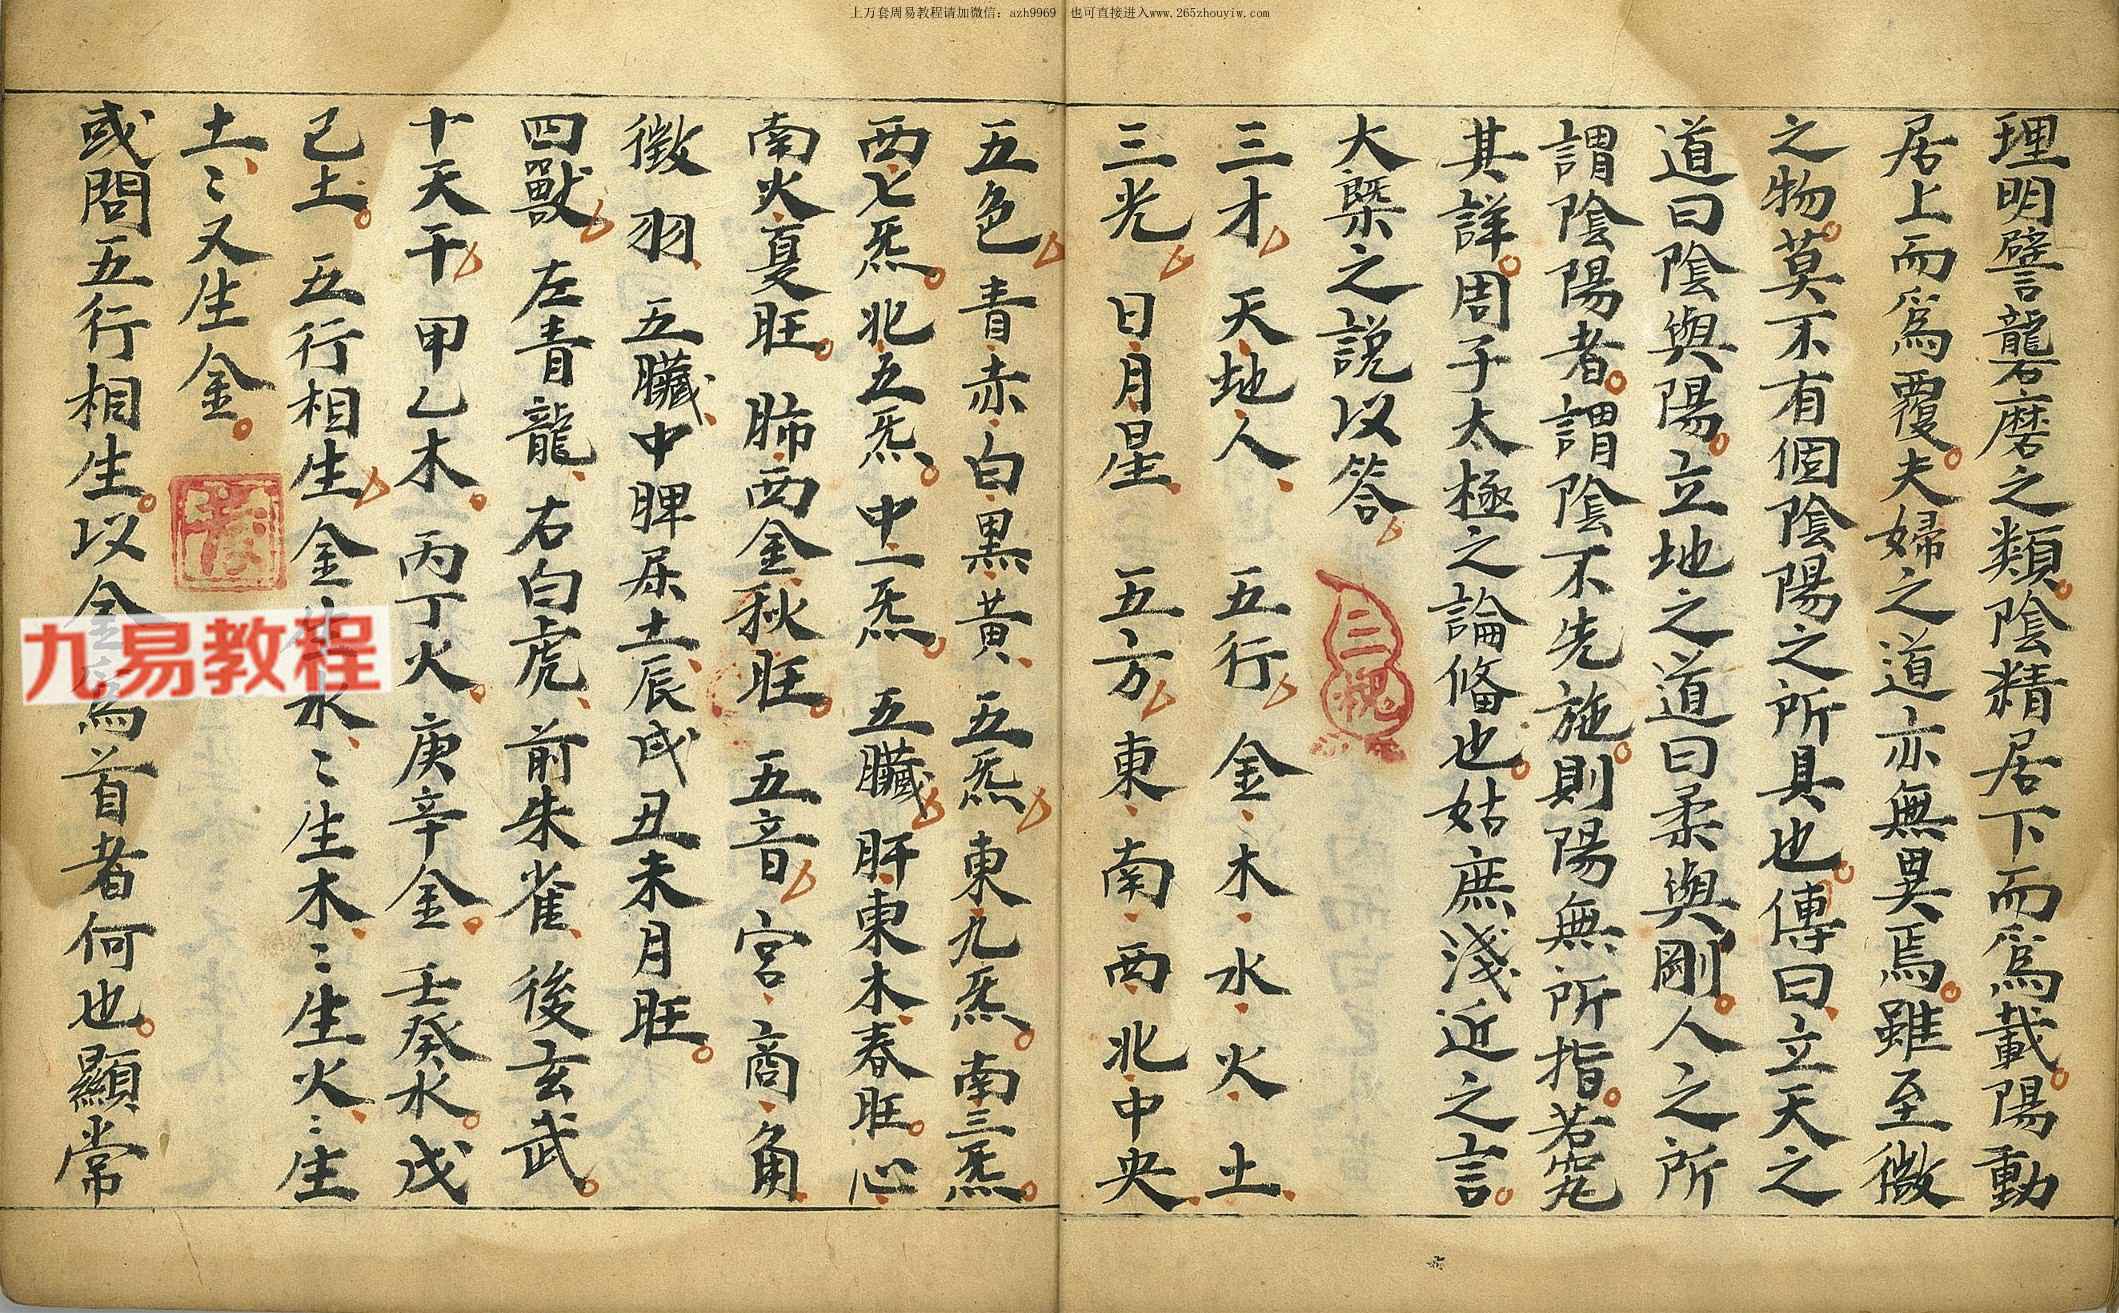 上万套周易教程请加微信：azh9969　也可直接进入www.265zhouyiw.com
理明譬礱磨之類。陰精居下而爲載。陽動
居上而爲覆。夫婦之道亦無異焉。雖至微
之物。莫不有個陰陽之所具也。傳曰、立天之
道曰陰與陽。立地之道曰柔與剛。人之所
謂陰陽者。謂陰不先施。則陽無所指。若究
其詳。周子太極之論俻也。姑庶淺近之言。
大槩之説以答
三才　天、地、人、　五行　金、木、水、火、土、
三光　日、月、星、　五方　東、南、西、北、中央、
五色　青、赤、白、黒、黄、　五炁　東九炁。南三炁。
西七炁。北五炁。中一炁。　五臟　肝東木、春旺。心
南火、夏旺。　肺西金秋旺。　五音　宮、商、角、
徵　羽、　五臟、中脾屎土、辰戌丑未月旺。
四獸　左青龍、右白虎、前朱雀、後玄武。
十天干　甲乙木。丙丁火。庚辛金。壬癸水。戊
己土。　五行相生　金生水、〻生木、〻生火、〻生
土、〻又生金。
或問五行相生。以金爲首者何也。顯常
三槐
九易教程